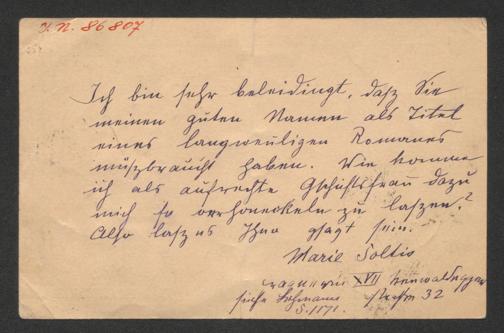 I. N. 86807
Ich bin sehr beleidingt, dasz Sie
meinen guten Namen als Titel
eines langweuligen Romanes
müszbraucht haben. Wie komme
ich als aufrechte Gschäftsfrau dazu
mich so verhoneckeln zu laszen?
Also lasz us Ihna gsagt sein.
Marie Soltis
XVII
siehe Lehmann 32
S. 1171.